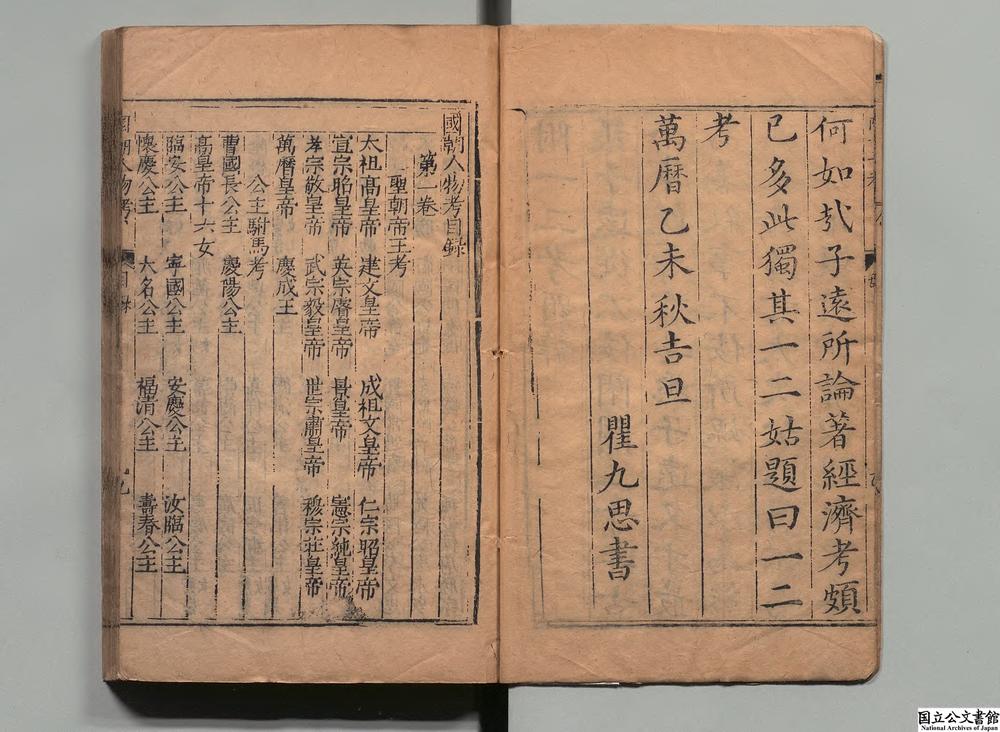 何如哉子遠所論著經濟考頗
已多此獨其一二姑題曰一二
考
萬曆乙未秋吉旦
瞿九思書
國朝人物考目録
第一卷
聖朝帝王考
太祖高皇帝 建文皇帝 成祖文皇帝 仁宗昭皇帝
宣宗昭皇帝 英宗睿皇帝 景皇帝 憲宗純皇帝
孝宗敬皇帝 武宗毅皇帝 世宗肅皇帝 穆宗莊皇帝
萬曆皇帝 慶成王
公主駙馬考
曹國長公主 慶陽公主
高皇帝十六女
臨安公主 寧國公主 安慶公主 汝臨公主
懷慶公主 大名公主 福清公主 壽春公主
國朝人物考
国立公文書館
National Archives of Japan